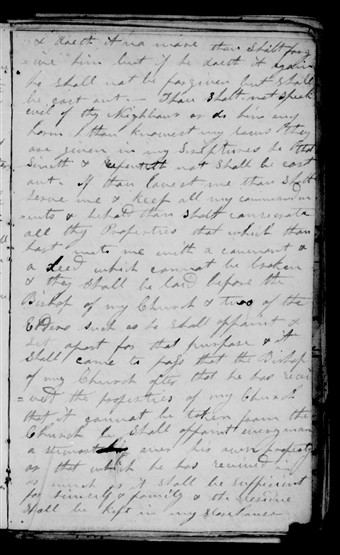 & doeth it no more thou shalt forg
=ive him but if he doeth it again
he shall not be forgiven but shall
be cast out — Thou shalt not speak
evil of thy Neighbour or do him any
harm thou knowest my laws they
are given in my Scriptures he that
Sineth & repenteth not shall be cast
out. If thou lovest me thou shalt
serve me & keep all my commandm
=ents & behold thou shalt consecrate
all thy Properties that which thou
hast unto me with a covenant &
a deed which cannot be broken
& they shall be laid before the
Bishop of my Church & two of the
Elders such as he shall appoint &
set apart for that purpose & it
shall come to pass that the Bishop
of my Church after that he has recei
=ved the properties of my Church
that it cannot be taken from the
Church he shall appoint every man
a steward over his own property
or that which he has received in
as much as it shall be sufficient
for himself & family & the residue
shall be kept in my storehouse